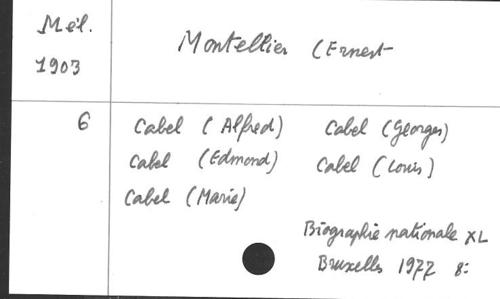 Mél.
1903
Montellier (Ernest
6
Cabel (Alfred) Cabel (Georges)
Cabel (Edmond) Cabel (Louis)
Cabel (Marie)
Biographie nationale XL
Bruxelles 1977 8: